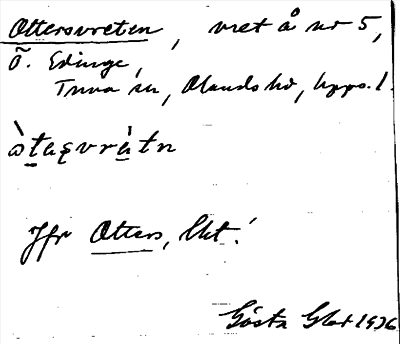 Ottersvreten, vret å nr 5,
Ö. Edinge,
Tuva sn, Olands hd, Upps. l.
òtaşvrètn
Jfr Otters, lkt!
Gösta Glat 1936